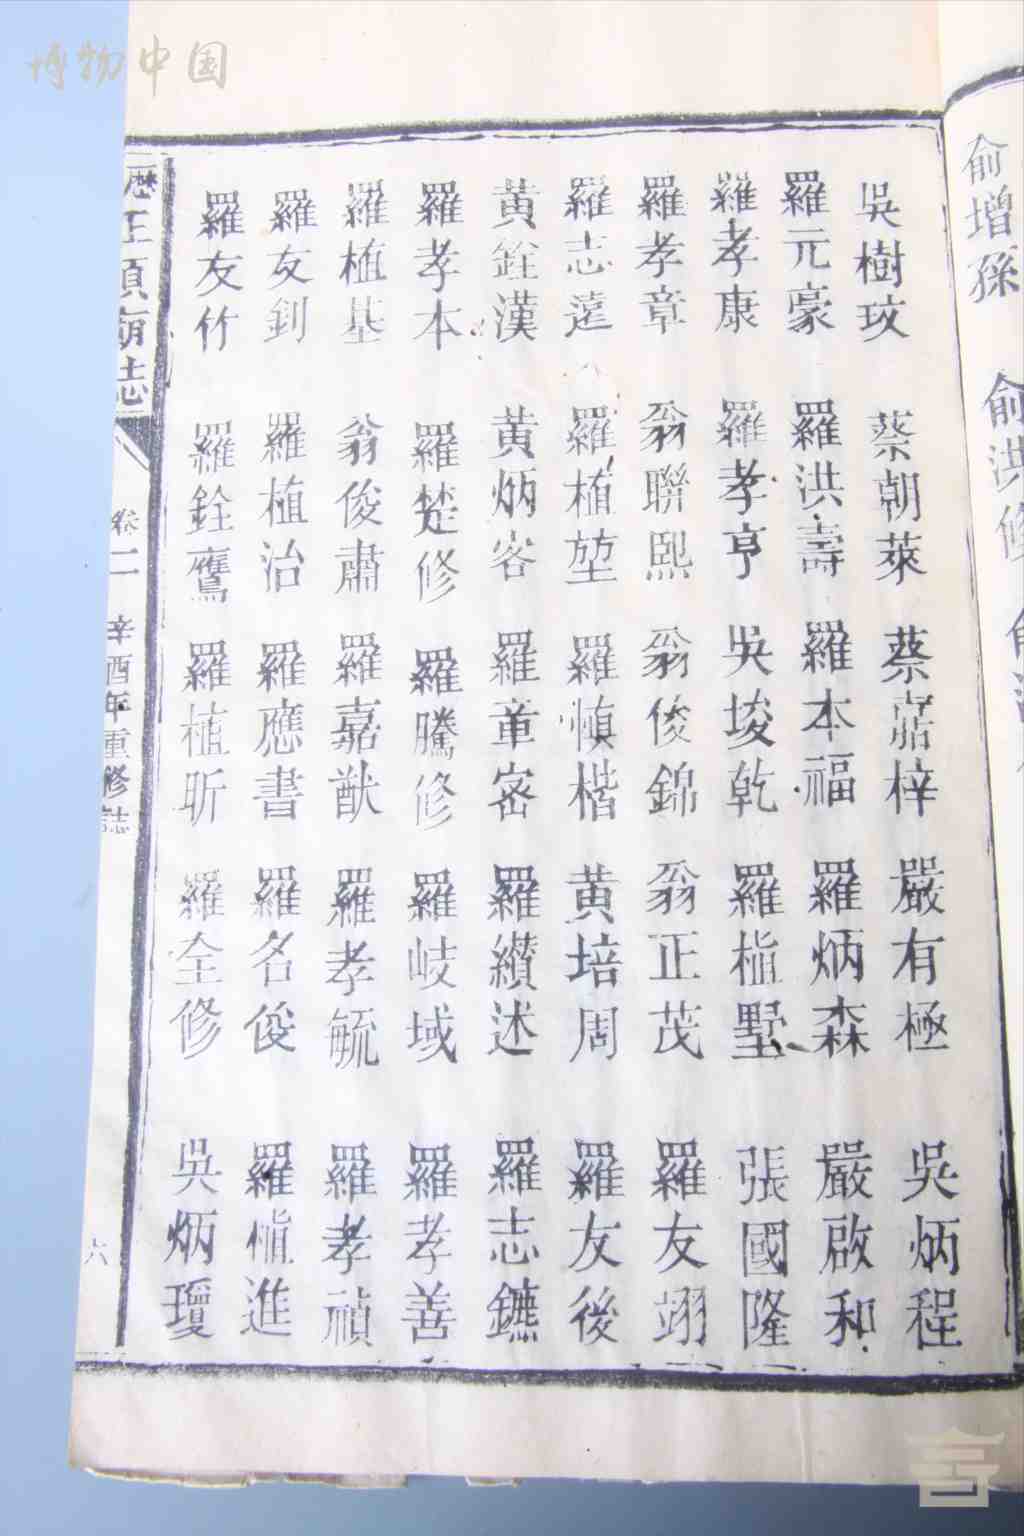 博物中国
俞增孫 俞洪修
吳樹玟 蔡朝萊 蔡嵓梓 嚴有極 吳炳程
羅元豪 羅洪壽 羅本福 羅炳森 嚴啟和
羅孝康 羅孝亨 吳埈乾 羅植墅 張國隆
羅孝章 翁聯熙 翁俊錦 翁正茂 羅友翊
羅志遠 羅植堃 羅慎楷 黃培周 羅友後
黃銓漢 黃炳客 羅章密 羅纘述 羅志鑣
羅孝本 羅楚修 羅騰修 羅岐域 羅孝善
羅植基 翁俊肅 羅嘉猷 羅孝毓 羅孝禎
羅友釗 羅植治 羅應書 羅名俊 羅慎進
羅友竹 羅銓鷹 羅植昕 羅全修 吳炳瓊
歷王項廟志 卷二 辛酉年重修誌 六